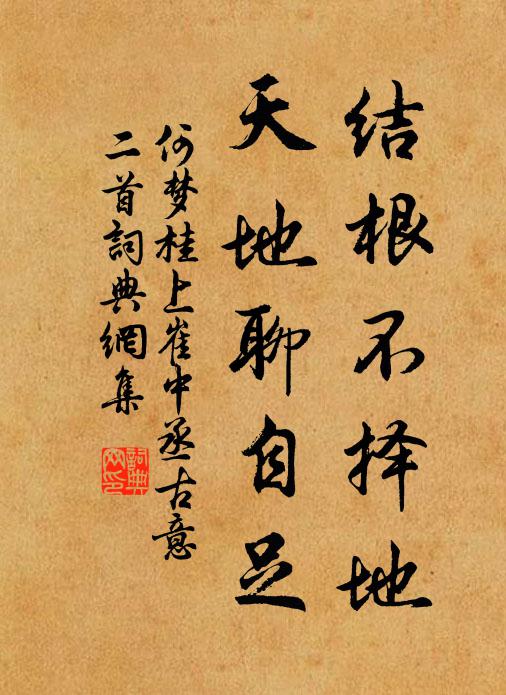 结根不择地
天地聊自足
何梦桂上崔中丞古意
二首詞典網集
詞典